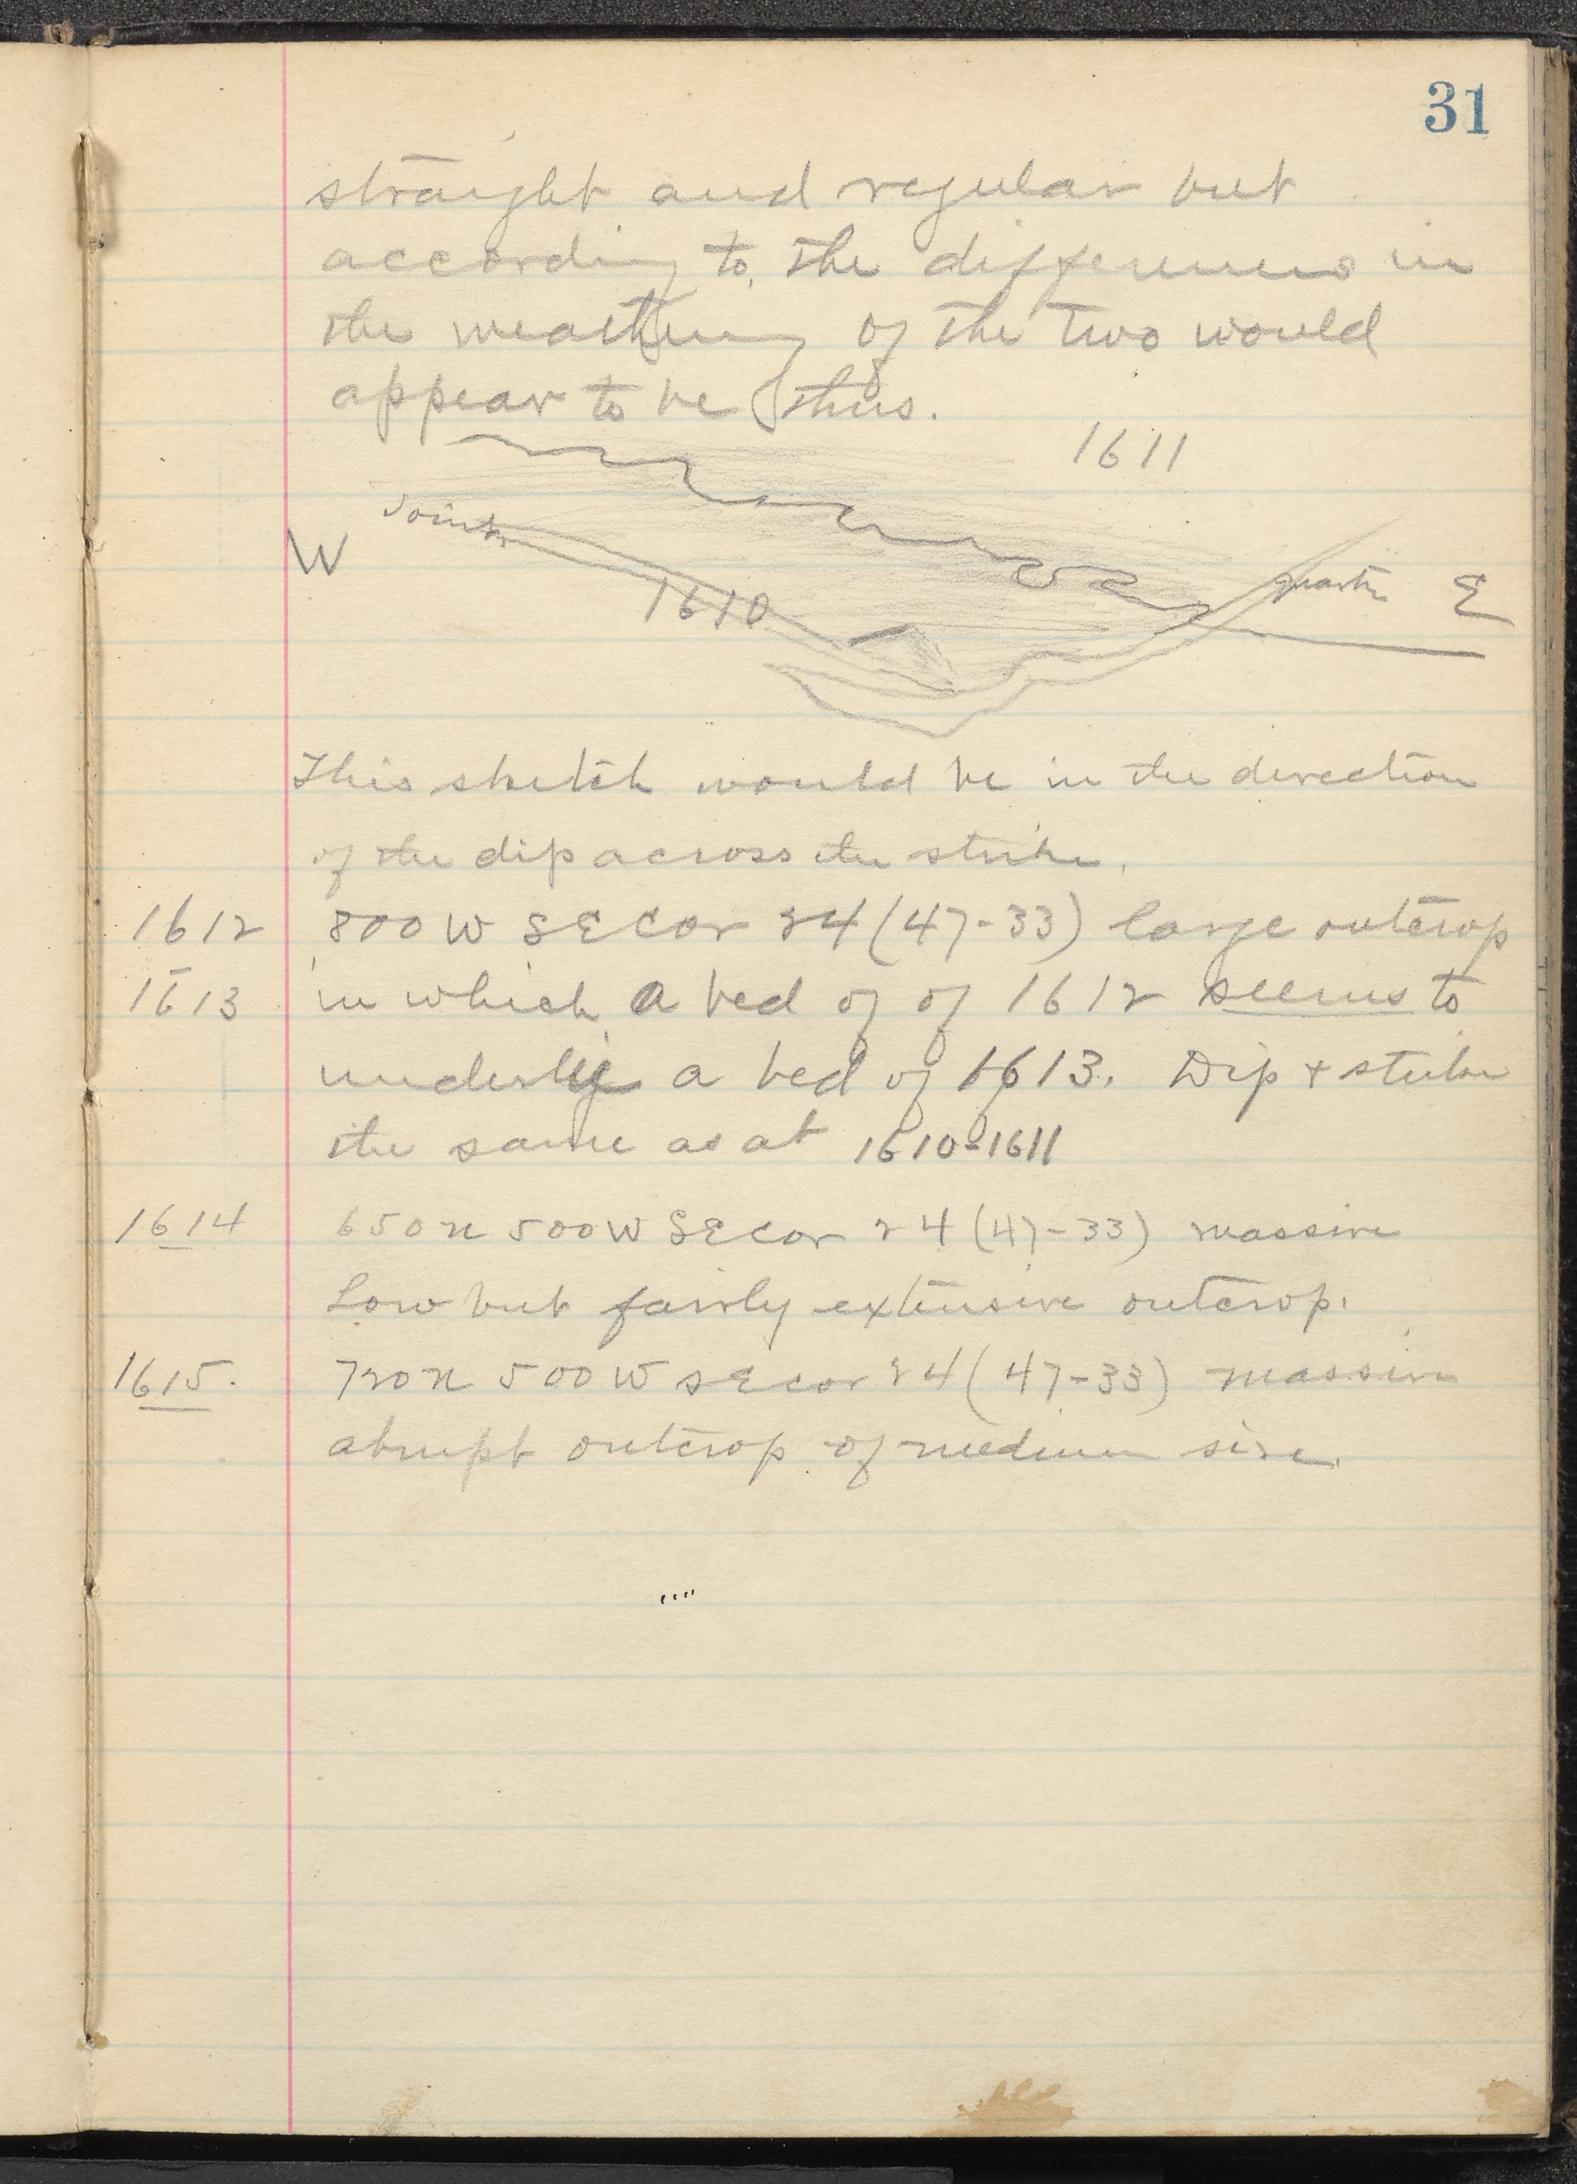 31
straight and regular but
according to the differences in
the weathering of the two would
appear to be thus.
1611
Joint
W
1610
quartz E
This sketch would be in the direction
of the dip across the strike.
1612 800 W SE cor 24 (47-33) large outcrop
1613 in which a bed of of 1612 seems to
underlie a bed of 1613. Dip + strike
the same as at 1610-1611
1614 650 N 500 W SE cor 24 (47-33) massive
Low but fairly extensive outcrop.
1615. 720 N 500 W SE cor 24 (47-33) massive
abrupt outcrop of medium size.